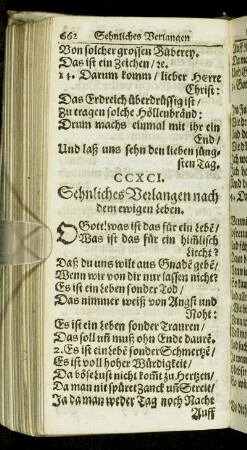 662 Sehnliches Verlangen
Von solcher grossen Büberey.
Das ist ein Zeichen / ꝛc.
13. Darum komm / lieber Herre
Christ:
Das Erdreich überdrüssig ist /
Zu tragen solche Höllenbränd:
Drum machs einmal mit ihr ein
End /
Und laß uns sehn den lieben jüng-
sten Tag.
CCXCI.
Sehnliches Verlangen nach
dem ewigen Leben.
O Gott! was ist das für ein Lebē /
Was ist das für ein him̄lisch
Liecht?
Daß du uns wilt aus Gnadē gebē /
Wenn wir von dir nur lassen nicht?
Es ist ein Leben sonder Tod /
Das nimmer weiß von Angst und
Noht:
Es ist ein Leben sonder Trauren /
Das soll uñ muß ohn Ende daurē.
2. Es ist ein Lebē sonder Schmertzē /
Es ist voll hoher Würdigkeit /
Da böse Lust nicht kom̄t zu Hertzen /
Da man nit spüret Zanck uñ Streit /
Ja da man weder Tag noch Nacht
Auff